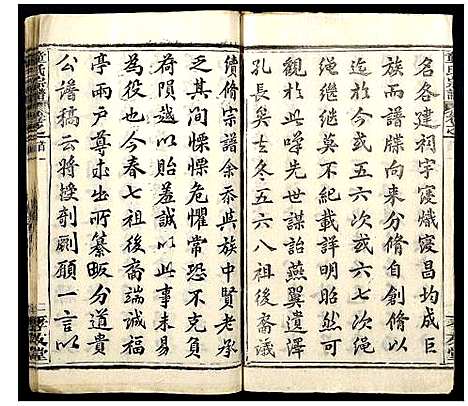 名各建祠宇寖熾寖昌均成巨
族而譜牒向來分脩自創脩以
迄今或五六次或六七次繩
繩繼繼莫不紀載詳明昭然可
觀於此嘩先世謀詒燕翼遺澤
孔長矣去冬五六八祖後裔議
續脩宗譜余忝其族中賢老承
乏其間慄慄危懼常恐不克負
荷隕越以貽羞誠以此事未易
為役也今春七祖後裔端誠福
亭雨戶尊求出所纂畈分道貴
公譜稿云將授剞劂願一言以
童氏宗譜 卷之首